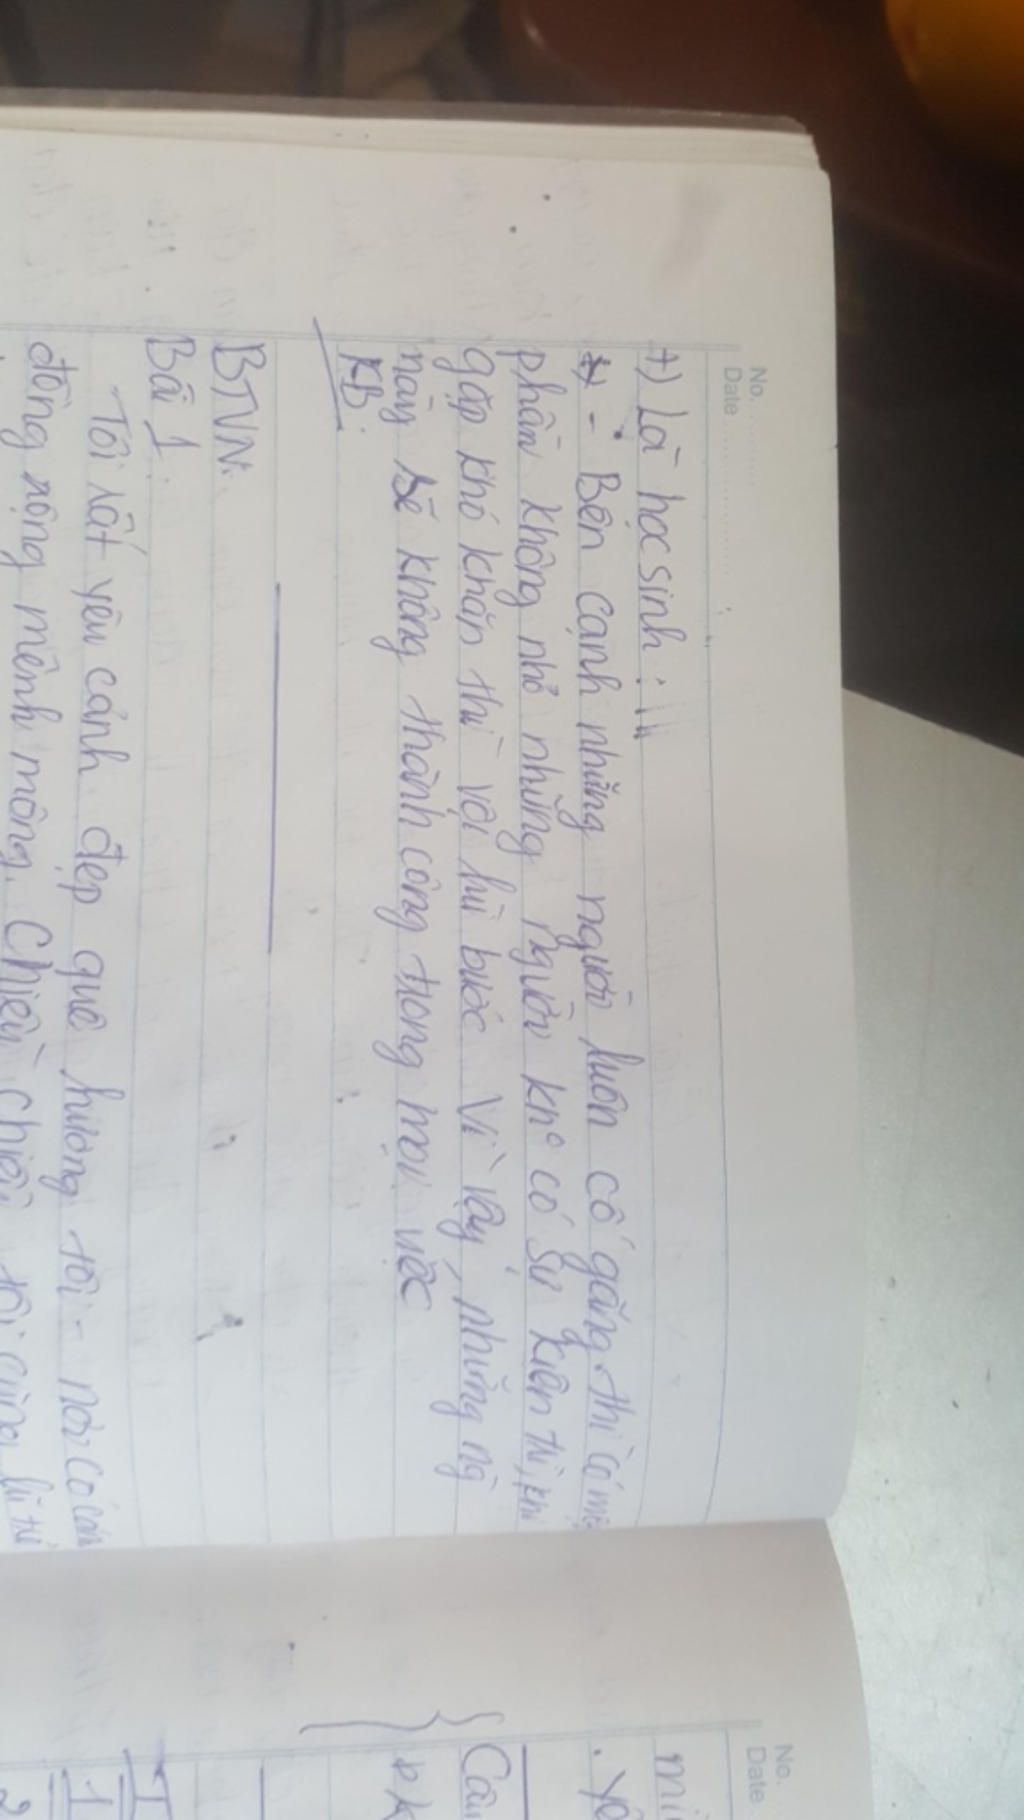 No. ............
Date ........................
+) Là học sinh :
- Bên cạnh những người luôn cố gắng thì có một
phần không nhỏ những người kn° có sự kiên trì, khi
gặp khó khăn thì vội lùi bước. Vì vậy, những ng
này sẽ không thành công trong mọi việc
KB:
BTVN:
Bài 1:
Tôi rất yêu cảnh đẹp quê hương tôi - nơi có cánh
đồng rộng mênh mông. Chiều chiều tôi cùng lũ
No.
Date
Câu
I
1
2